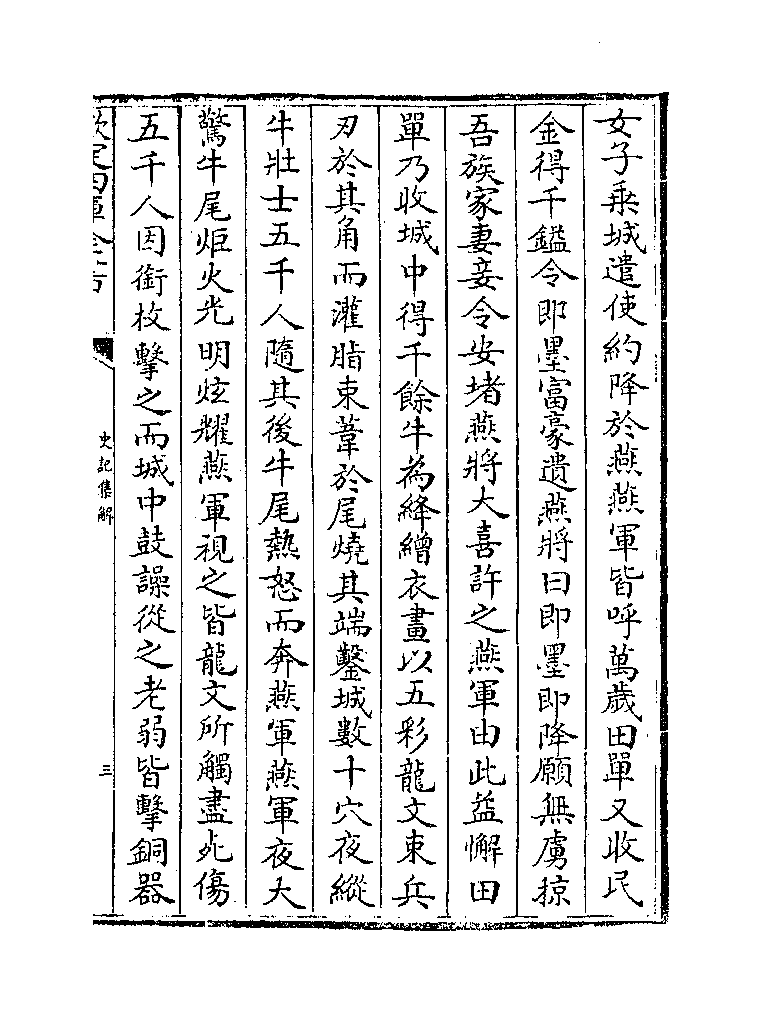 女子乗城遣使約降於燕燕軍皆呼萬歲田單又收民
金得千鎰令即墨富豪遺燕將曰即墨即降願無虜掠
吾族家妻妾令安堵燕將大喜許之燕軍由此益懈田
單乃收城中得千餘牛為絳繒衣畫以五彩龍文束兵
刃於其角而灌脂束葦於尾燒其端鑿城數十穴夜縱
牛壯士五千人隨其後牛尾熱怒而奔燕軍燕軍夜大
驚牛尾炬火光明炫耀燕軍視之皆龍文所觸盡死傷
五千人因銜枚擊之而城中鼓譟從之老弱皆擊銅器
欽定四庫全書
史記集解
三